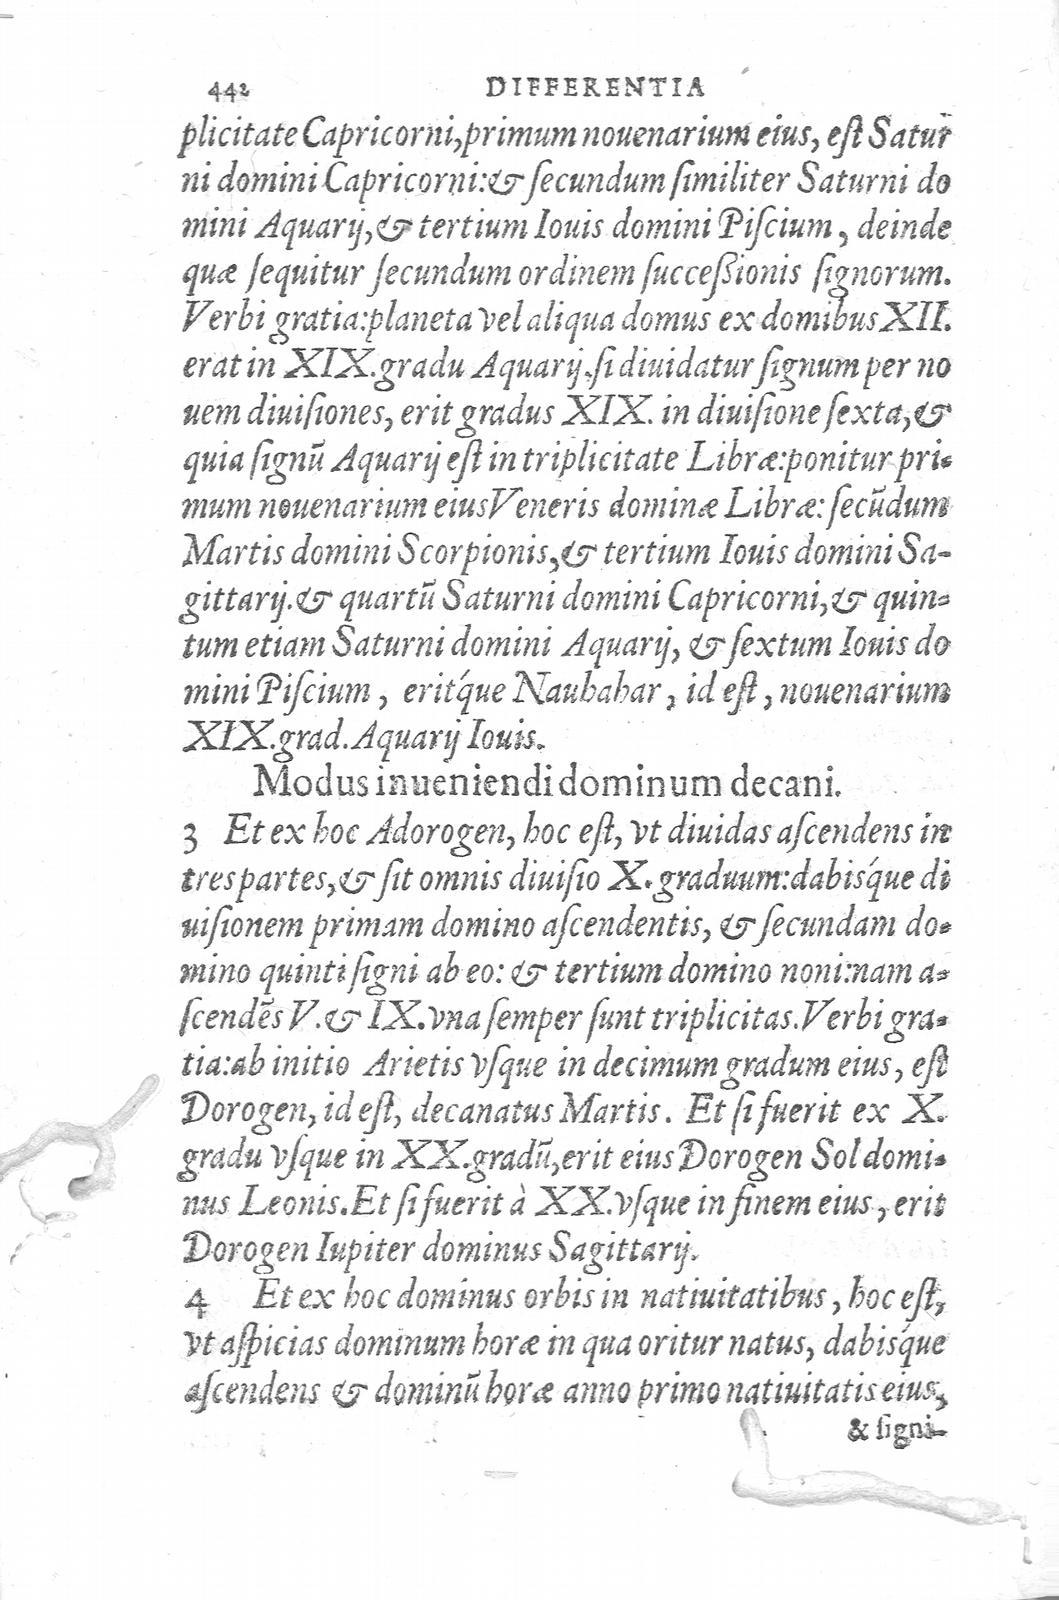 442 DIFFERENTIA
plicitate Capricorni,primum nouenarium eius, est Satur
ni domini Capricorni:& secundum similiter Saturni do
mini Aquarij,& tertium Iouis domini Piscium, deinde
quæ sequitur secundum ordinem successionis signorum.
Verbi gratia:planeta vel aliqua domus ex domibus XII.
erat in XIX.gradu Aquarij.si diuidatur signum per no
uem diuisiones, erit gradus XIX. in diuisione sexta,&
quia signũ Aquarij est in triplicitate Libræ:ponitur pri-
mum nouenarium eius Veneris dominæ Libræ: secũdum
Martis domini Scorpionis,& tertium Iouis domini Sa-
gittarij.& quartũ Saturni domini Capricorni,& quin-
tum etiam Saturni domini Aquarij, & sextum Iouis do
mini Piscium, erit́que Naubahar, id est, nouenarium
XIX.grad.Aquarij Iouis.
Modus inueniendi dominum decani.
3 Et ex hoc Adorogen, hoc est, vt diuidas ascendens in
tres partes,& sit omnis diuisio X. graduum:dabiśque di
uisionem primam domino ascendentis, & secundam do-
mino quinti signi ab eo: & tertium domino noni:nam a-
scendẽs V.& IX.vna semper sunt triplicitas.Verbi gra-
tia:ab initio Arietis vsque in decimum gradum eius, est
Dorogen, id est, decanatus Martis. Et si fuerit ex X.
gradu vsque in XX.gradũ,erit eius Dorogen Sol domi-
nus Leonis.Et si fuerit à XX.vsque in finem eius, erit
Dorogen Iupiter dominus Sagittarij.
4 Et ex hoc dominus orbis in natiuitatibus, hoc est,
vt aspicias dominum horæ in qua oritur natus, dabiśque
ascendens & dominũ horæ anno primo natiuitatis eius,
& signi-